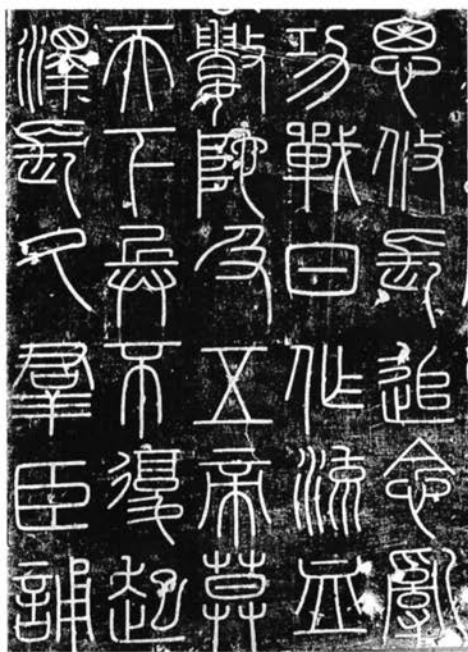 思攸長追念亂
功戰日作流血
數陀及五帝莫
天下兵不復起
澤長久羣臣誦